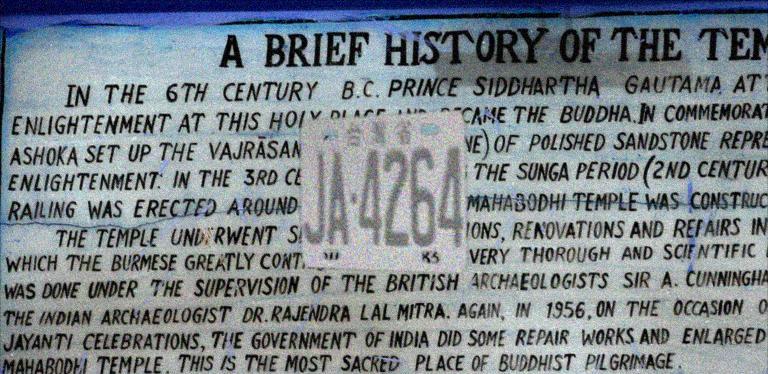 A BRIEF HISTORY OF THE TEM
IN THE 6TH CENTURY B.C. PRINCE SIDDHARTHA GAUTAMA AT
ENLIGHTENMENT AT THIS HOLY PLACE AND BECAME THE BUDDHA. IN COMMEMORAT
ASHOKA SET UP THE VAJRĀSAN NE) OF POLISHED SANDSTONE REPRE
ENLIGHTENMENT. IN THE 3RD CE THE SUNGA PERIOD (2ND CENTUR
RAILING WAS ERECTED AROUND MAHABODHI TEMPLE WAS CONSTRUC
THE TEMPLE UNDERWENT S IONS, RENOVATIONS AND REPAIRS IN
WHICH THE BURMESE GREATLY CONT VERY THOROUGH AND SCIENTIFIC
WAS DONE UNDER THE SUPERVISION OF THE BRITISH ARCHAEOLOGISTS SIR A. CUNNINGHA
THE INDIAN ARCHAEOLOGIST DR. RAJENDRA LAL MITRA. AGAIN, IN 1956, ON THE OCCASION O
JAYANTI CELEBRATIONS, THE GOVERNMENT OF INDIA DID SOME REPAIR WORKS AND ENLARGED
MAHABODHI TEMPLE. THIS IS THE MOST SACRED PLACE OF BUDDHIST PILGRIMAGE.
台灣省
JA-4264